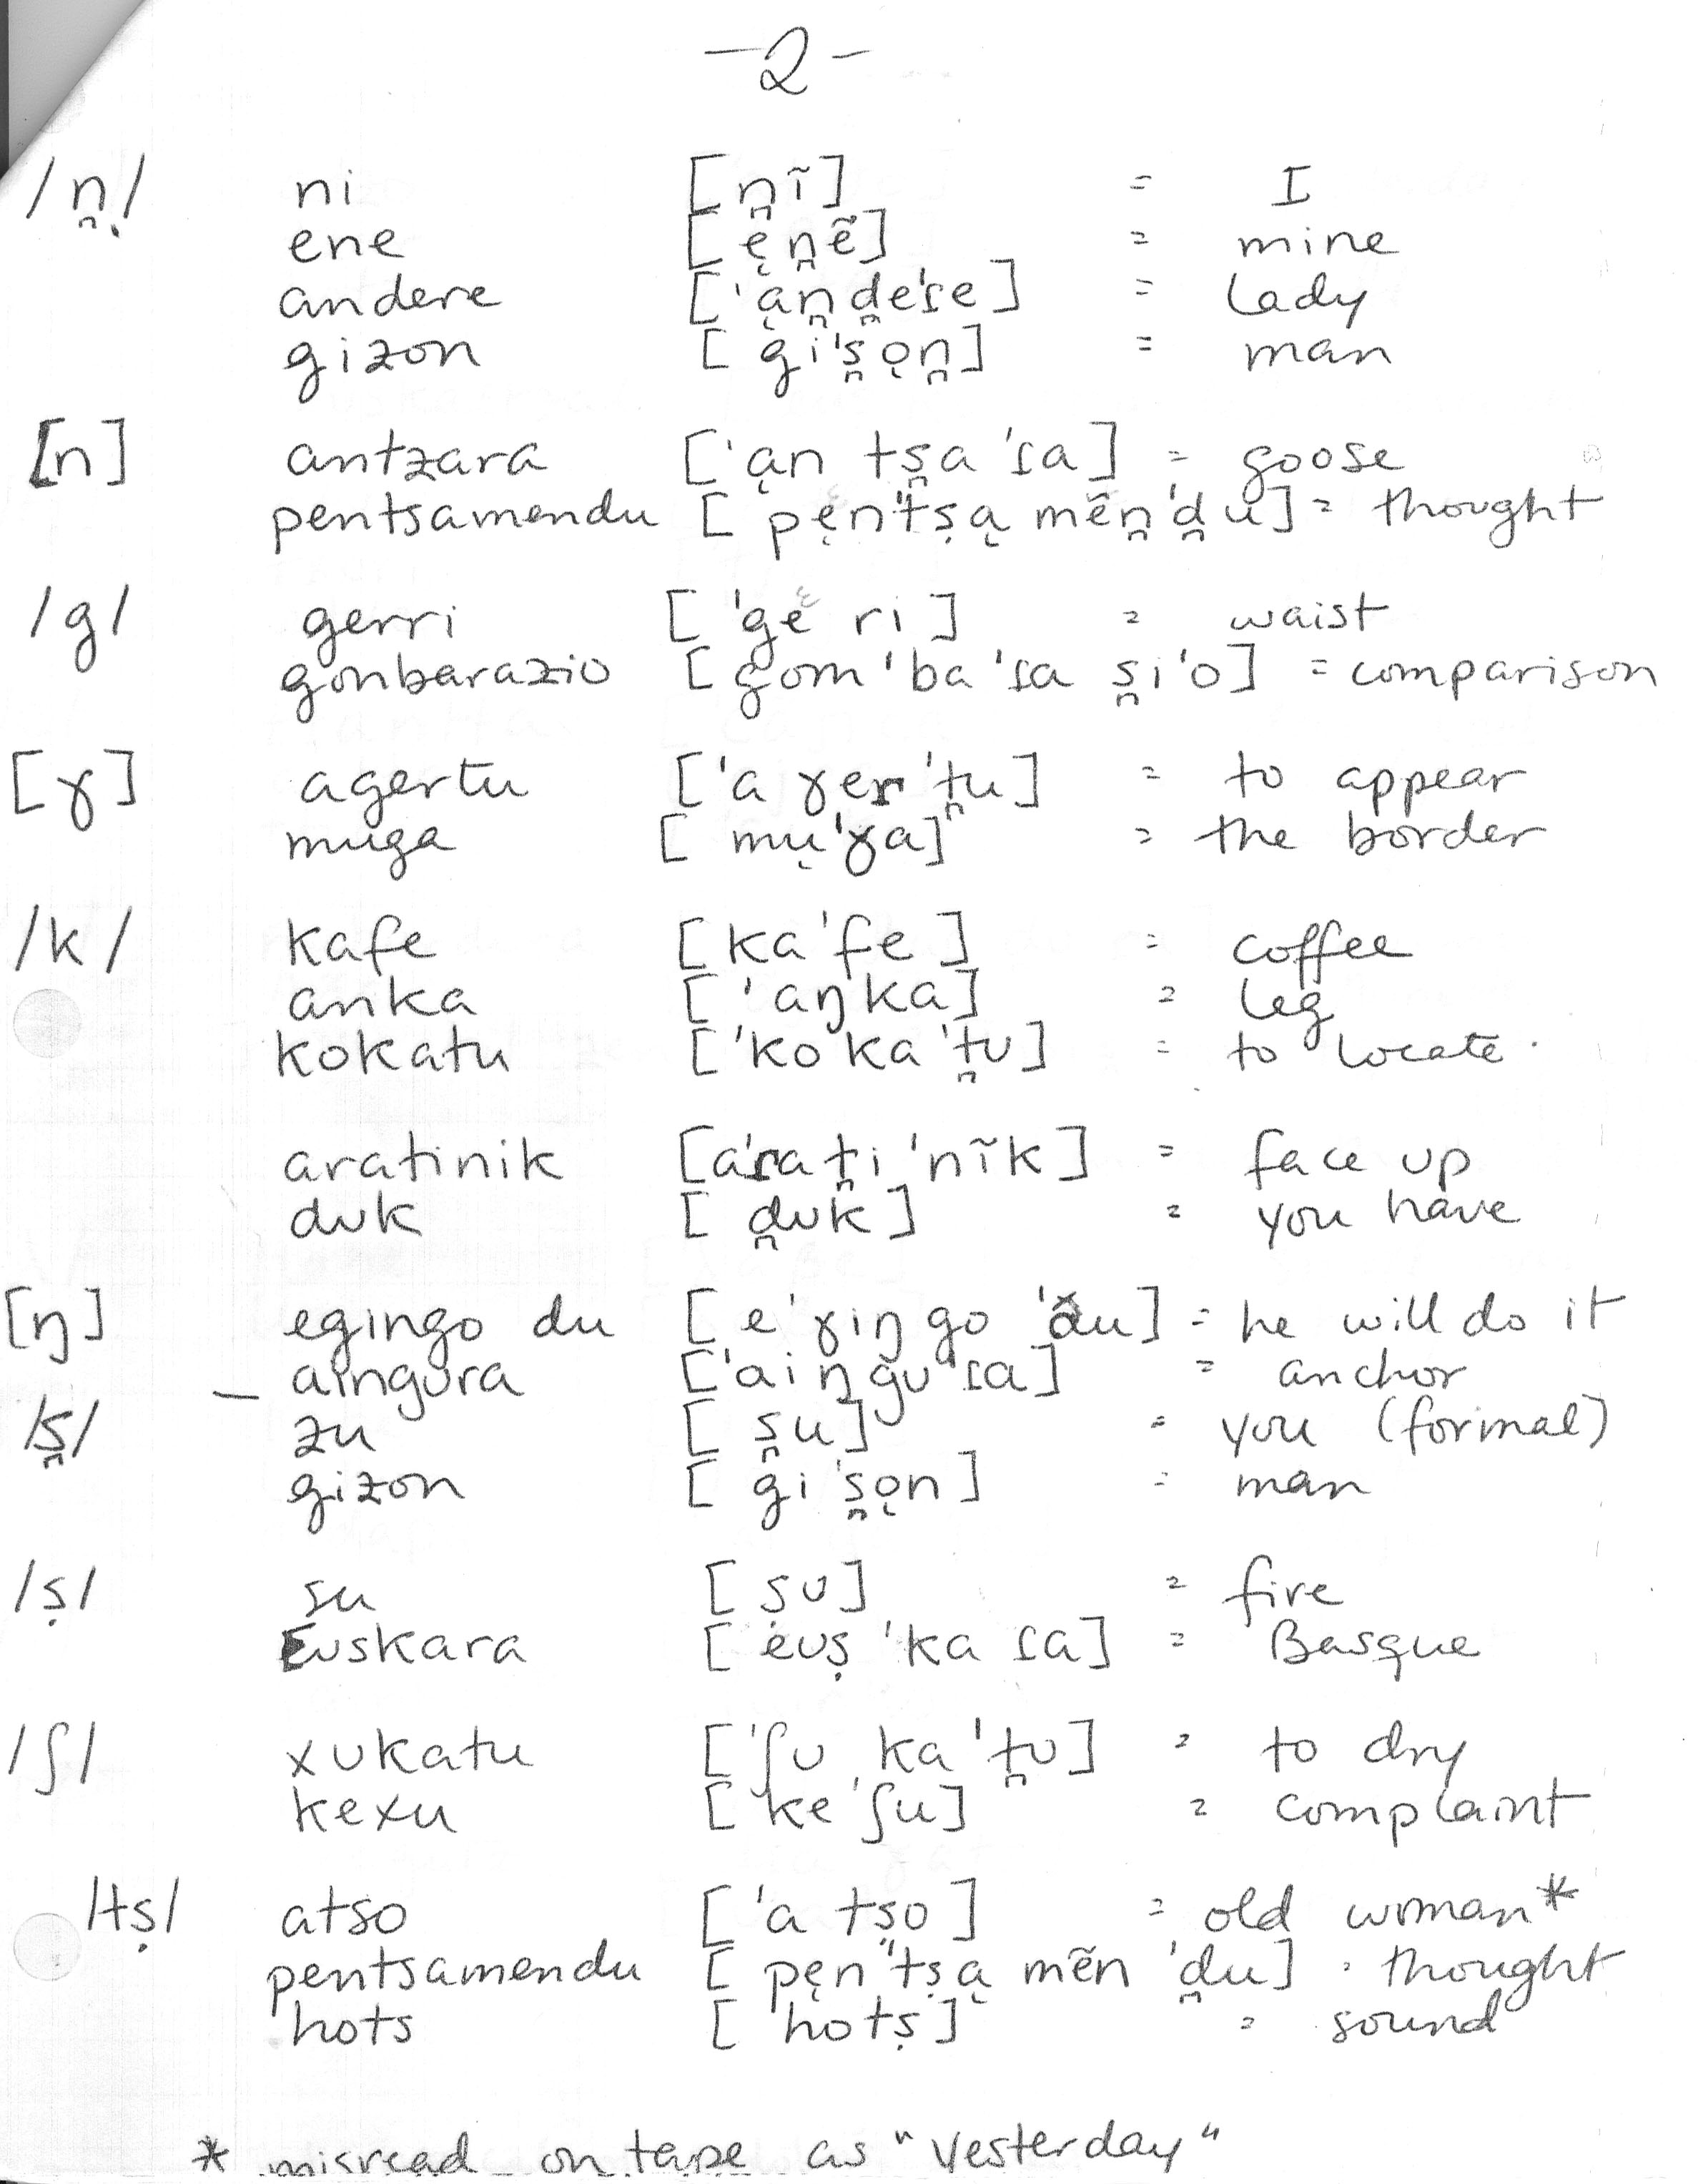 -2-
/n̪̣/ ni [n̪ĩ] = I
ene [ę n̪ẽ] = mine
andere ['ąn̪d̪e'ɾe] = lady
gizon [gi's̪ǫn̪] = man
[n] antzara ['ąn ts̪a 'ɾa] = goose
pentsamendu [pęn'tṣą mẽn̪'d̪u] = thought
/g/ gerri ['ge ri] = waist
gonbarazio [gom'ba'ɾa s̪i'o] = comparison
[ɣ] agertu ['a ɣer 't̪u] = to appear
muga [mų'ɣa] = the border
/k/ kafe [ka'fe] = coffee
anka ['aŋka] = leg
kokatu ['ko ka 't̪u] = to locate.
aratinik [a'ɾat̪i 'nĩk] = face up
duk [d̪uk] = you have
[ŋ] egingo du [e'ɣiŋ go 'ðu] = he will do it
– aingura ['aiŋgu'ɾa] = anchor
/s̪/ zu [s̪u] = you (formal)
gizon [gi's̪ǫn] = man
/ṣ/ su [ṣu] = fire
Euskara [euṣ 'ka ɾa] = Basque
/ʃ/ xukatu ['ʃu ka 't̪u] = to dry
kexu [ke'ʃu] = complaint
/tṣ/ atso ['a tṣo] = old woman*
pentsamendu [pęn'tṣą mẽn 'd̪u] = thought
hots [hotṣ] = sound
* misread on tape as "yesterday"